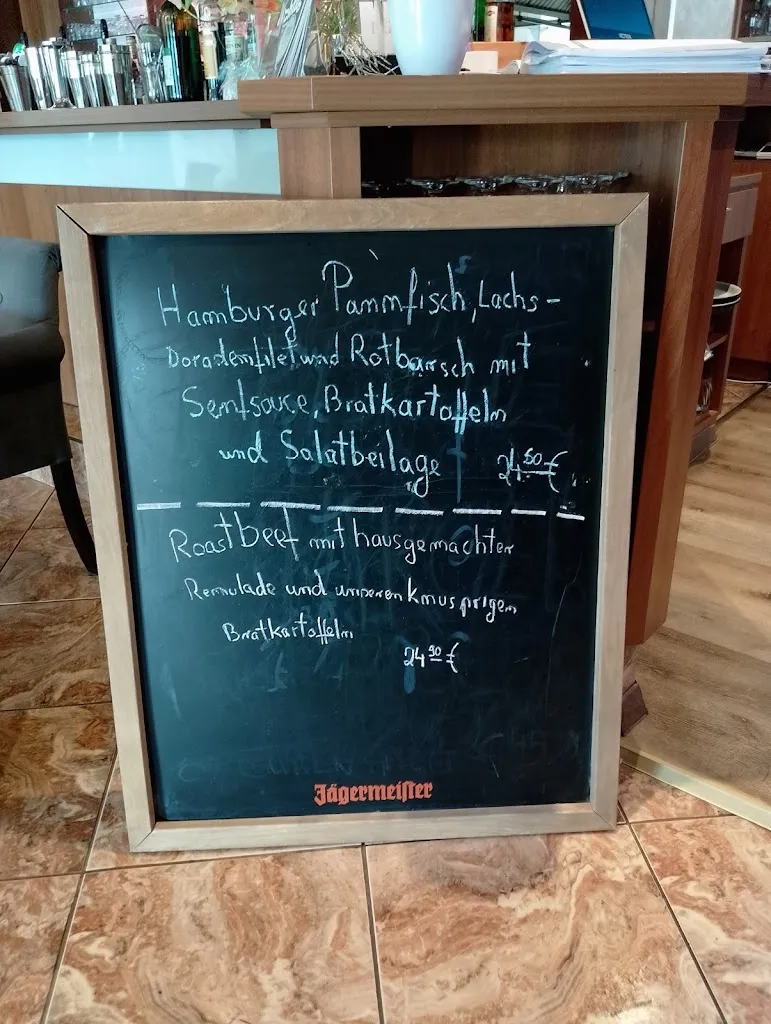 Hamburger Pannfisch, Lachs-
Doradenfilet und Rotbarsch mit
Senfsauce, Bratkartoffeln
und Salatbeilage 24.50 €
Roastbeef mit hausgemachter
Remulade und unseren knusprigen
Bratkartoffeln
24 90 €
Jägermeister